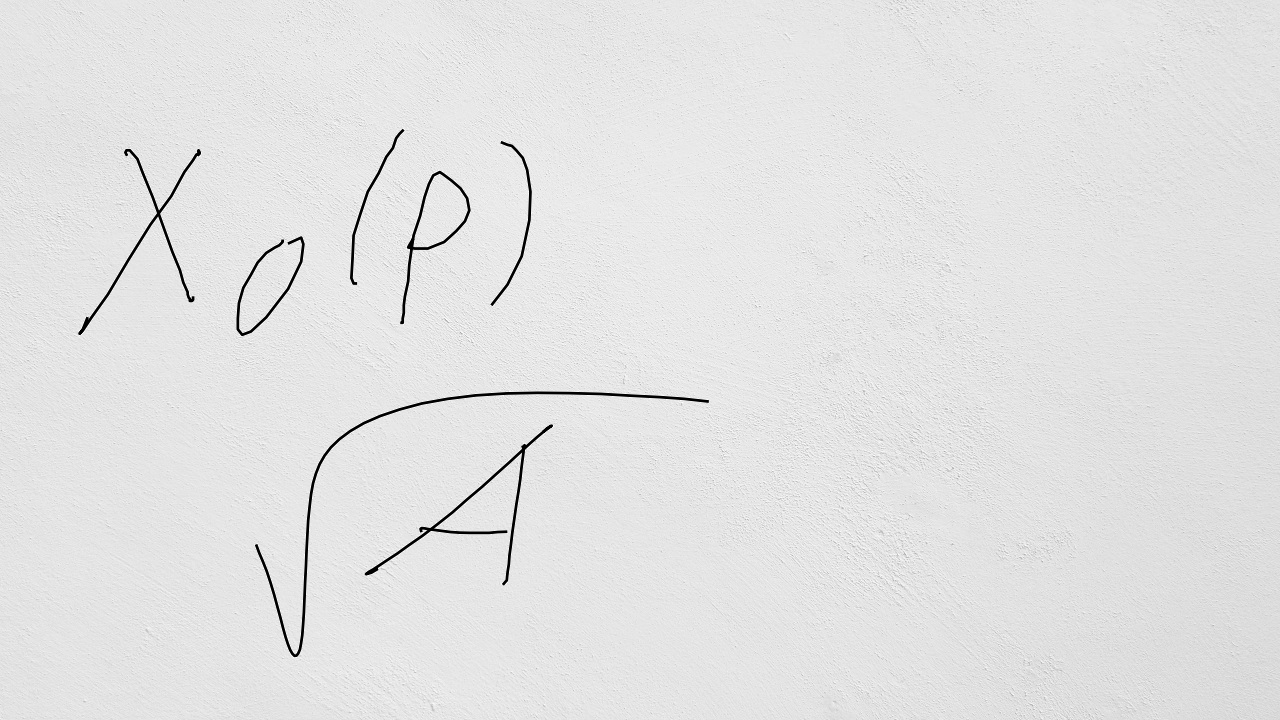 X₀(p)
√A